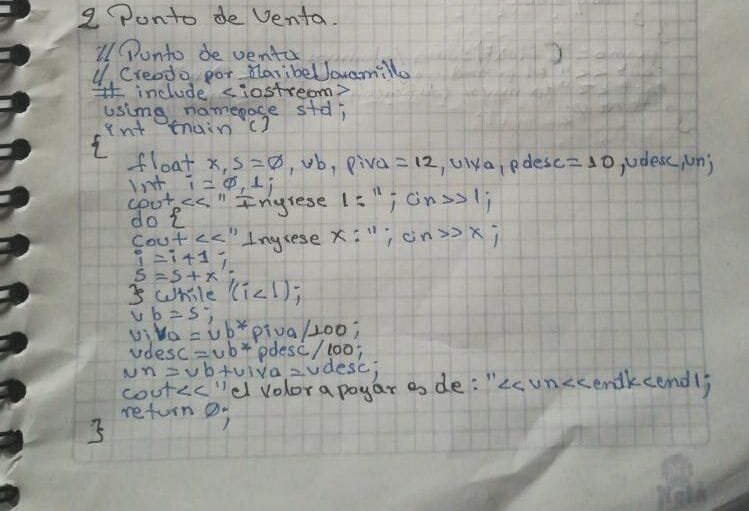 2 Punto de Venta.
// Punto de venta
// Creado por Maribel Jaramillo
# include <iostream>
using namepace std;
int main ()
{
float x, s=0, vb, piva=12, viva, pdesc=10, vdesc, vn;
int i=0, l;
cout<<"Ingrese l:"; cin>>l;
do {
cout<<"Ingrese x:"; cin>>x;
i=i+1;
s=s+x;
} while (i<l);
vb=s;
viva=vb*piva/100;
vdesc=vb*pdesc/100;
vn=vb+viva=vdesc;
cout<<"el valor a pagar es de:"<<vn<<endl<<endl;
return 0;
}